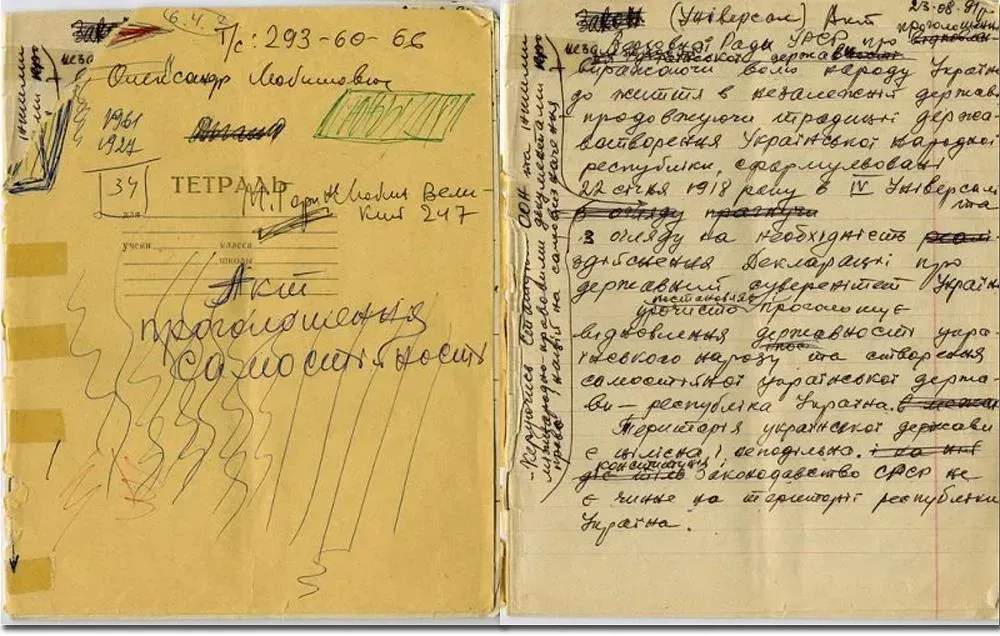 Т/с: 293-60-66
Олександр Любимович
1961
1927
34
ТЕТРАДЬ
М. Гори Кобия Вели-
кит 247
для
учени класса
школы
Акт
проголошення
самостійності
23.08.91
Закон (Універсал) Акт
проголошення
Верховної Ради УРСР про
неза української держав
виражаючи волю народу Україн
до життя в незалежній держав
продовжуючи традиції держа-
вотворення Української Народної
республіки, сформульовані
22 січня 1918 року в IV Універсалі
та
в огляду прагнучи
з огляду на необхідність
здійснення Декларації про
державний суверенітет Україн
урочисто проголошує
відновлення державності укра-
їнського народу та створення
самостійної української держа-
ви — республіка Україна. в межах
Територія української держави
є цілісна і неподільна.
конституція
законодавство СРСР не
є чинне на території республіки
Україна.
Керуючись Статутом ООН та іншими
міжнародно-правовими документами про
право націй на самовизначення